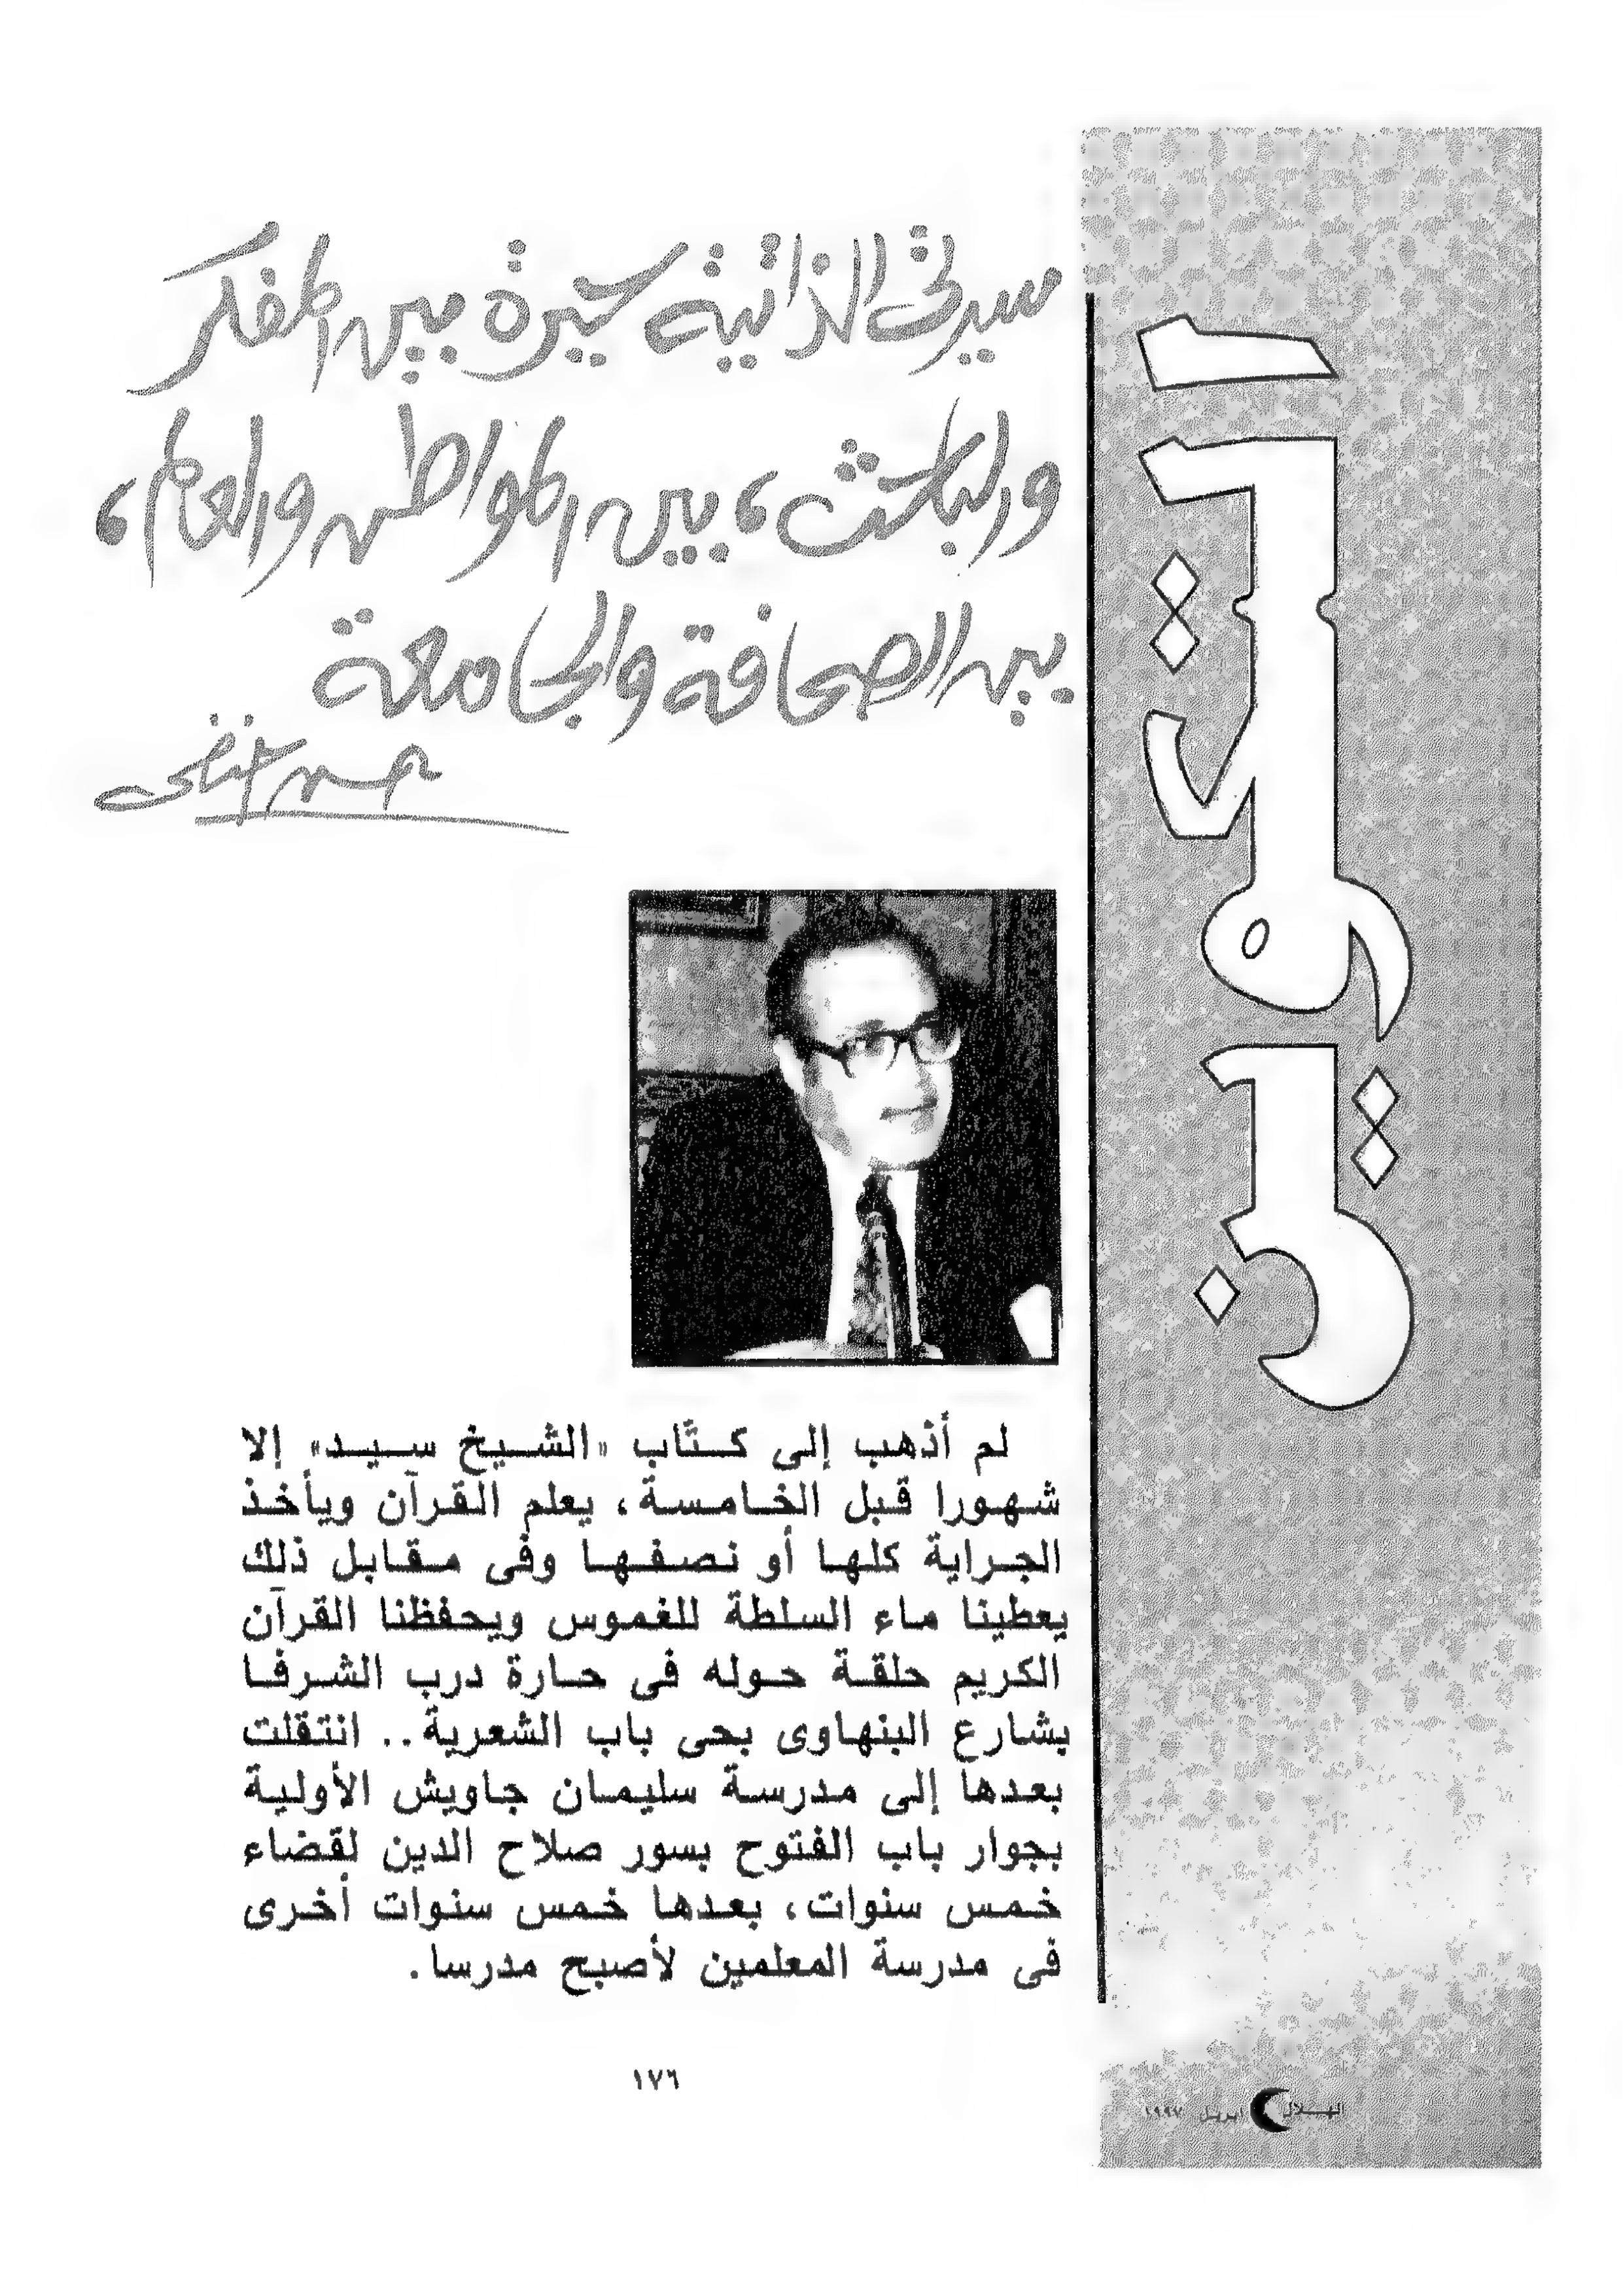 التكوين
سيرتى الذاتية حيرة بين المفكر
والباحث، بين المواطن والعالم،
بين الصحافة والجامعة
حسن حنفى
لم أذهب إلى كتّاب «الشيخ سيد» إلا
شهورا قبل الخامسة، يعلم القرآن ويأخذ
الجراية كلها أو نصفها وفى مقابل ذلك
يعطينا ماء السلطة للغموس ويحفظنا القرآن
الكريم حلقة حوله فى حارة درب الشرفا
بشارع البنهاوى بحى باب الشعرية.. انتقلت
بعدها إلى مدرسة سليمان جاويش الأولية
بجوار باب الفتوح بسور صلاح الدين لقضاء
خمس سنوات، بعدها خمس سنوات أخرى
فى مدرسة المعلمين لأصبح مدرسا.
١٧٦
الهلال ابريل ١٩٩٧